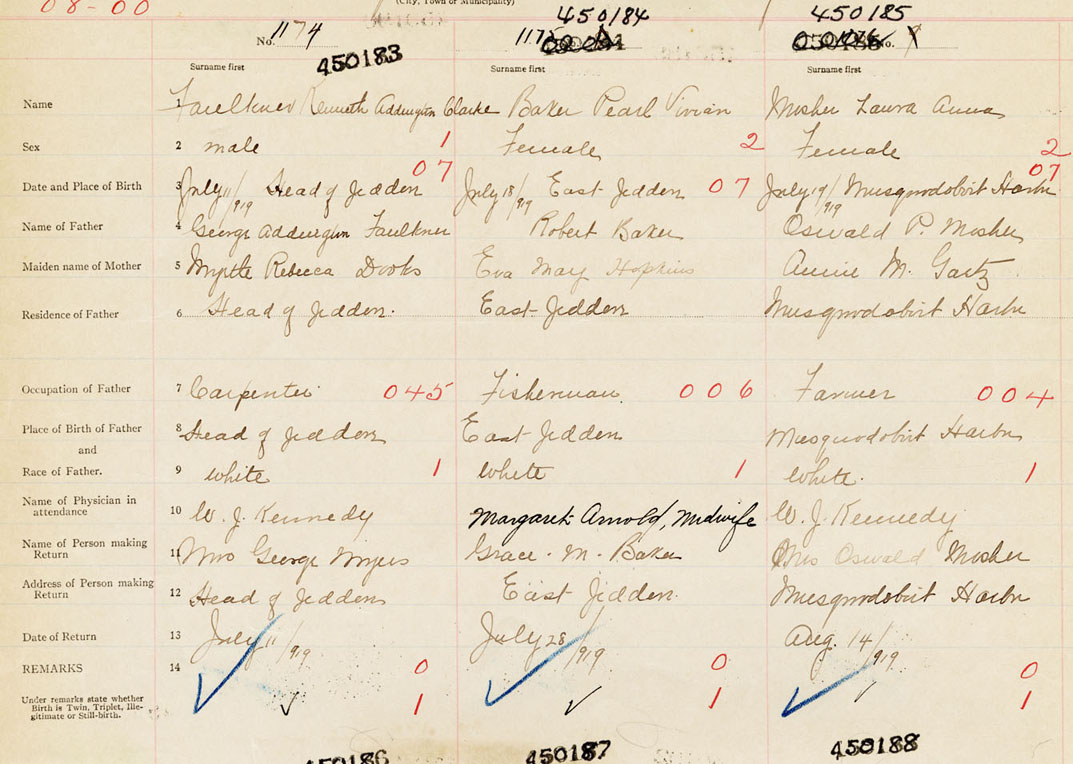 (City, Town or Municipality)
08-00
450184
450185
No. 1174
1175
1176 No.
450183
Surname first
Surname first
Surname first
Name
1 Faulkner Kenneth Addington Clarke
Baker Pearl Vivian
Mosher Laura Anna
Sex
2 male 1
Female 2
Female 2
Date and Place of Birth
3 July 11/919 Head of Jeddore 07
July 18/919 East Jeddore 07
July 19/919 Musquodobirt Harbr 07
Name of Father
4 George Addington Faulkner
Robert Baker
Oswald P. Mosher
Maiden name of Mother
5 Myrtle Rebecca Dooks
Eva May Hopkins
Annie M. Gaetz
Residence of Father
6 Head of Jeddore.
East Jeddore
Musquodobirt Harbr
Occupation of Father
7 Carpenter 045
Fisherman. 006
Farmer 004
Place of Birth of Father
8 Head of Jeddore
East Jeddore
Musquodobirt Harbr
and
Race of Father.
9 white 1
White 1
White. 1
Name of Physician in
attendance
10 W. J. Kennedy
Margaret Arnold, Midwife
W. J. Kennedy
Name of Person making
Return
11 Mrs George Myers
Grace. M. Baker
Mrs Oswald Mosher
Address of Person making
Return
12 Head of Jeddore
East Jeddore.
Musquodobirt Harbr
Date of Return
13 July 11/919
July 28/919
Aug. 14/919
REMARKS
14 0
0
0
Under remarks state whether
Birth is Twin, Triplet, Ille-
gitimate or Still-birth.
1
1
1
450186
450187
450188